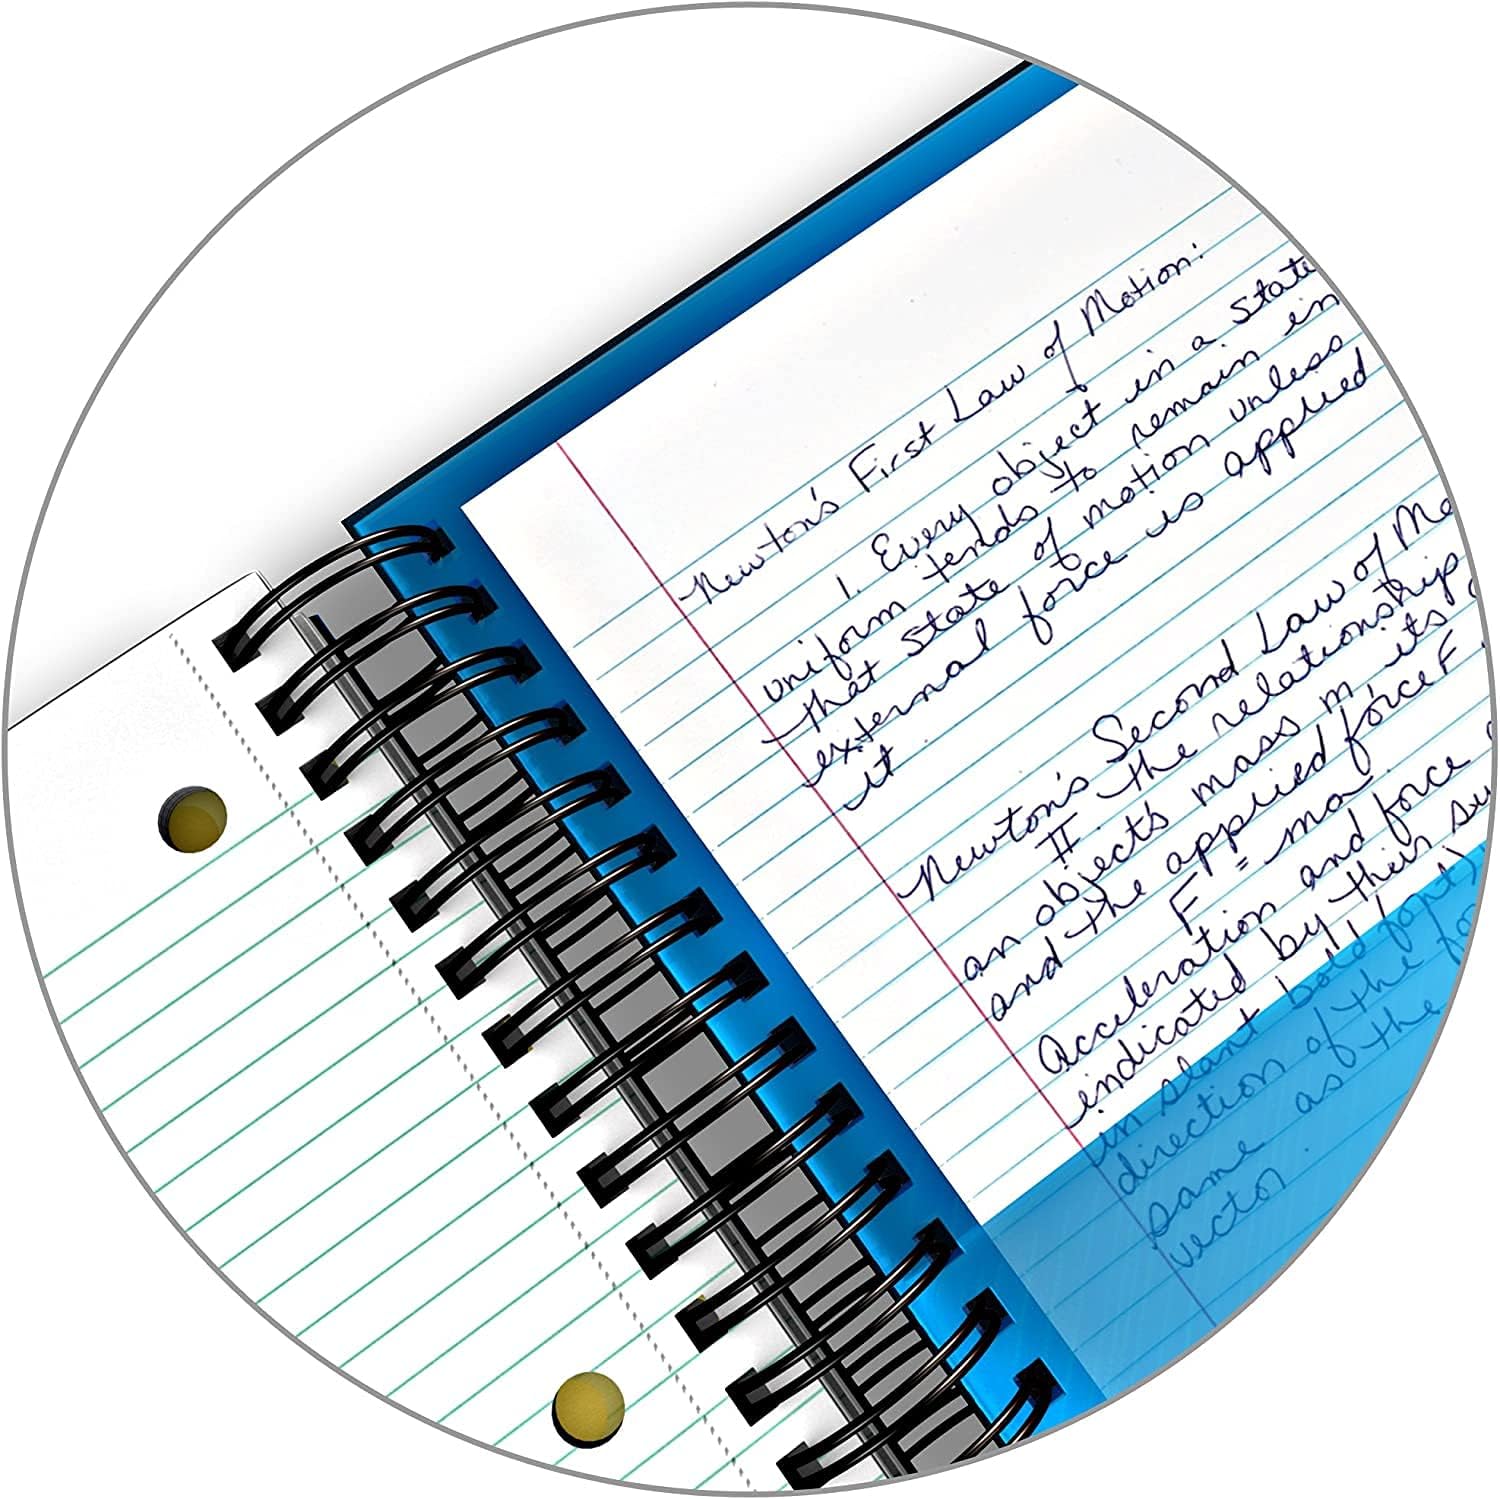 Newton's First Law of Motion:
1. Every object in a State
uniform tends to remain in
that state of motion unless en
external force is applied
it
Newton's Second Law of Mo
II the relationship
an objects mass m its
and the applied force F
F = ma.
Acceleration and force
indicated by their
in slant bold font)
direction of the
same as the
vector.